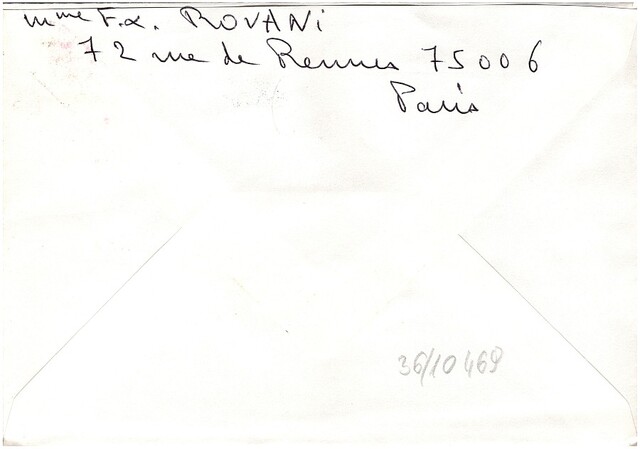 Mme F.X. ROVANi
72 rue de Rennes 75006
Paris
36/10469